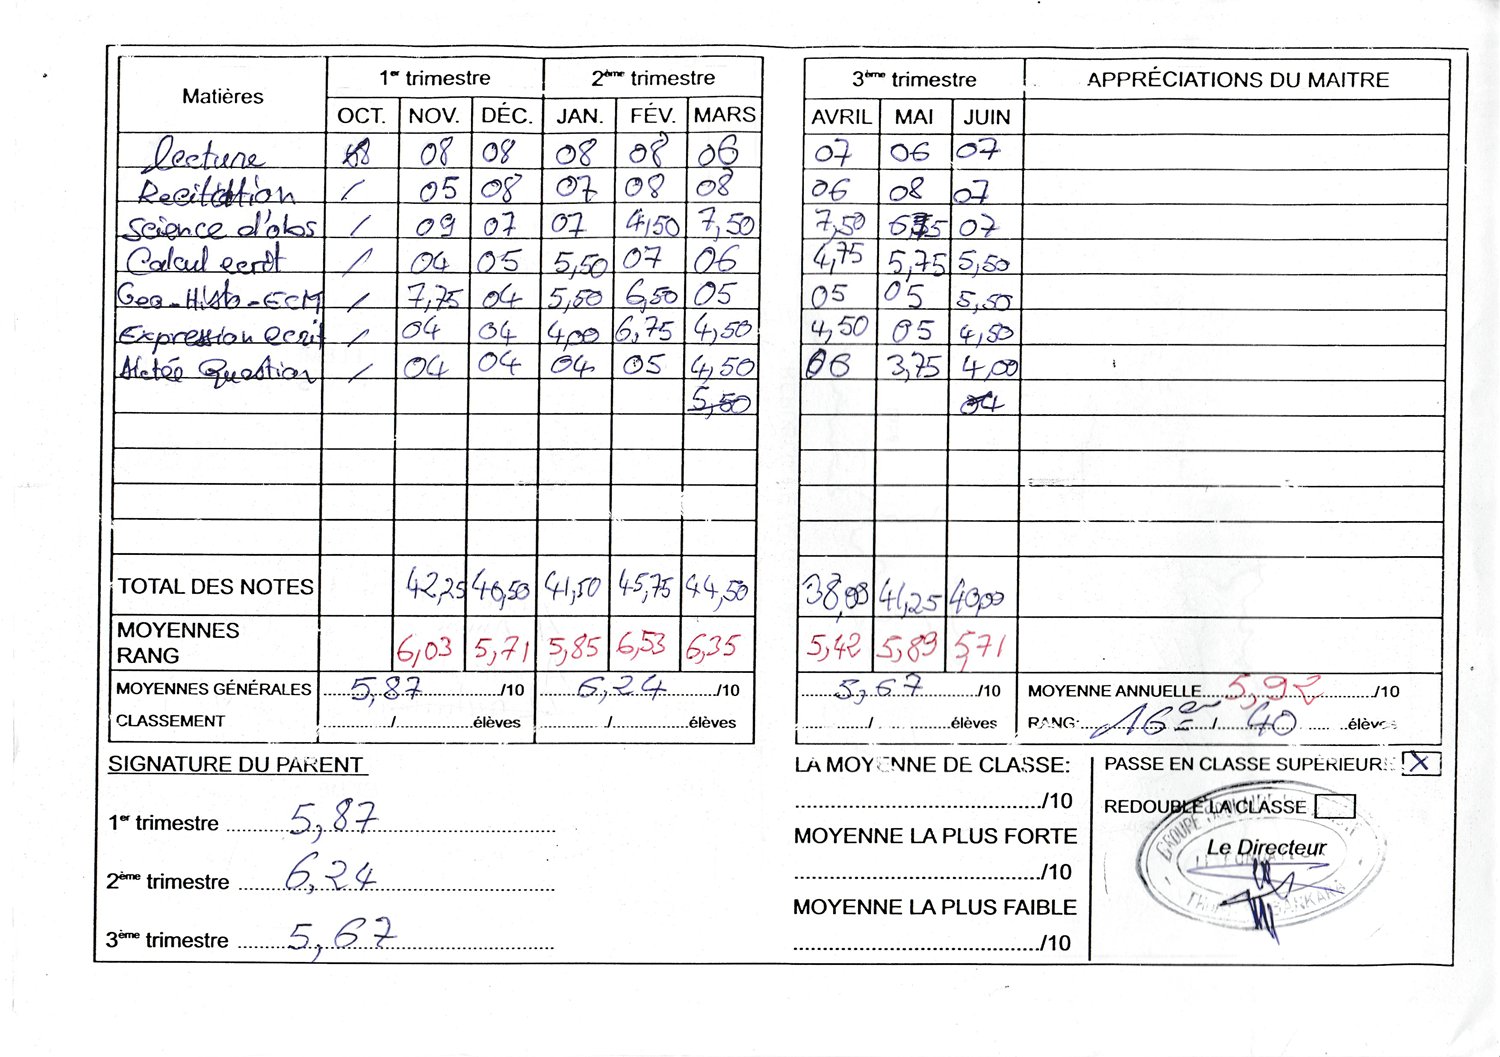 Matières 1er trimestre 2ème trimestre 3ème trimestre APPRÉCIATIONS DU MAITRE
OCT. NOV. DÉC. JAN. FÉV. MARS AVRIL MAI JUIN
lecture 08 08 08 08 06 07 06 07
Recitation / 05 08 07 08 08 06 08 07
Science d'obs / 09 07 07 4,50 7,50 7,50 07
Calcul ecrit / 04 05 5,50 07 06 4,75 5,75 5,50
Geo-Histo-ECM / 7,75 04 5,50 6,50 05 05 05 5,50
Expression ecrit / 04 04 4,00 6,75 4,50 4,50 05 4,50
Question / 04 04 04 05 4,50 06 3,75 4,00
5,50 04
TOTAL DES NOTES 42,25 40,50 41,50 45,75 44,50 38,00 41,25 40,00
MOYENNES 6,03 5,71 5,85 6,53 6,35 5,42 5,89 5,71
RANG
MOYENNES GÉNÉRALES 5,87 /10 6,24 /10 5,67 /10 MOYENNE ANNUELLE 5,92 /10
CLASSEMENT / élèves / élèves / élèves RANG: 16er / 40 élèves
SIGNATURE DU PARENT LA MOYENNE DE CLASSE: PASSE EN CLASSE SUPÉRIEURE X
/10
1er trimestre 5,87 REDOUBLE LA CLASSE
MOYENNE LA PLUS FORTE Le Directeur
2ème trimestre 6,24 /10
MOYENNE LA PLUS FAIBLE
3ème trimestre 5,67 /10